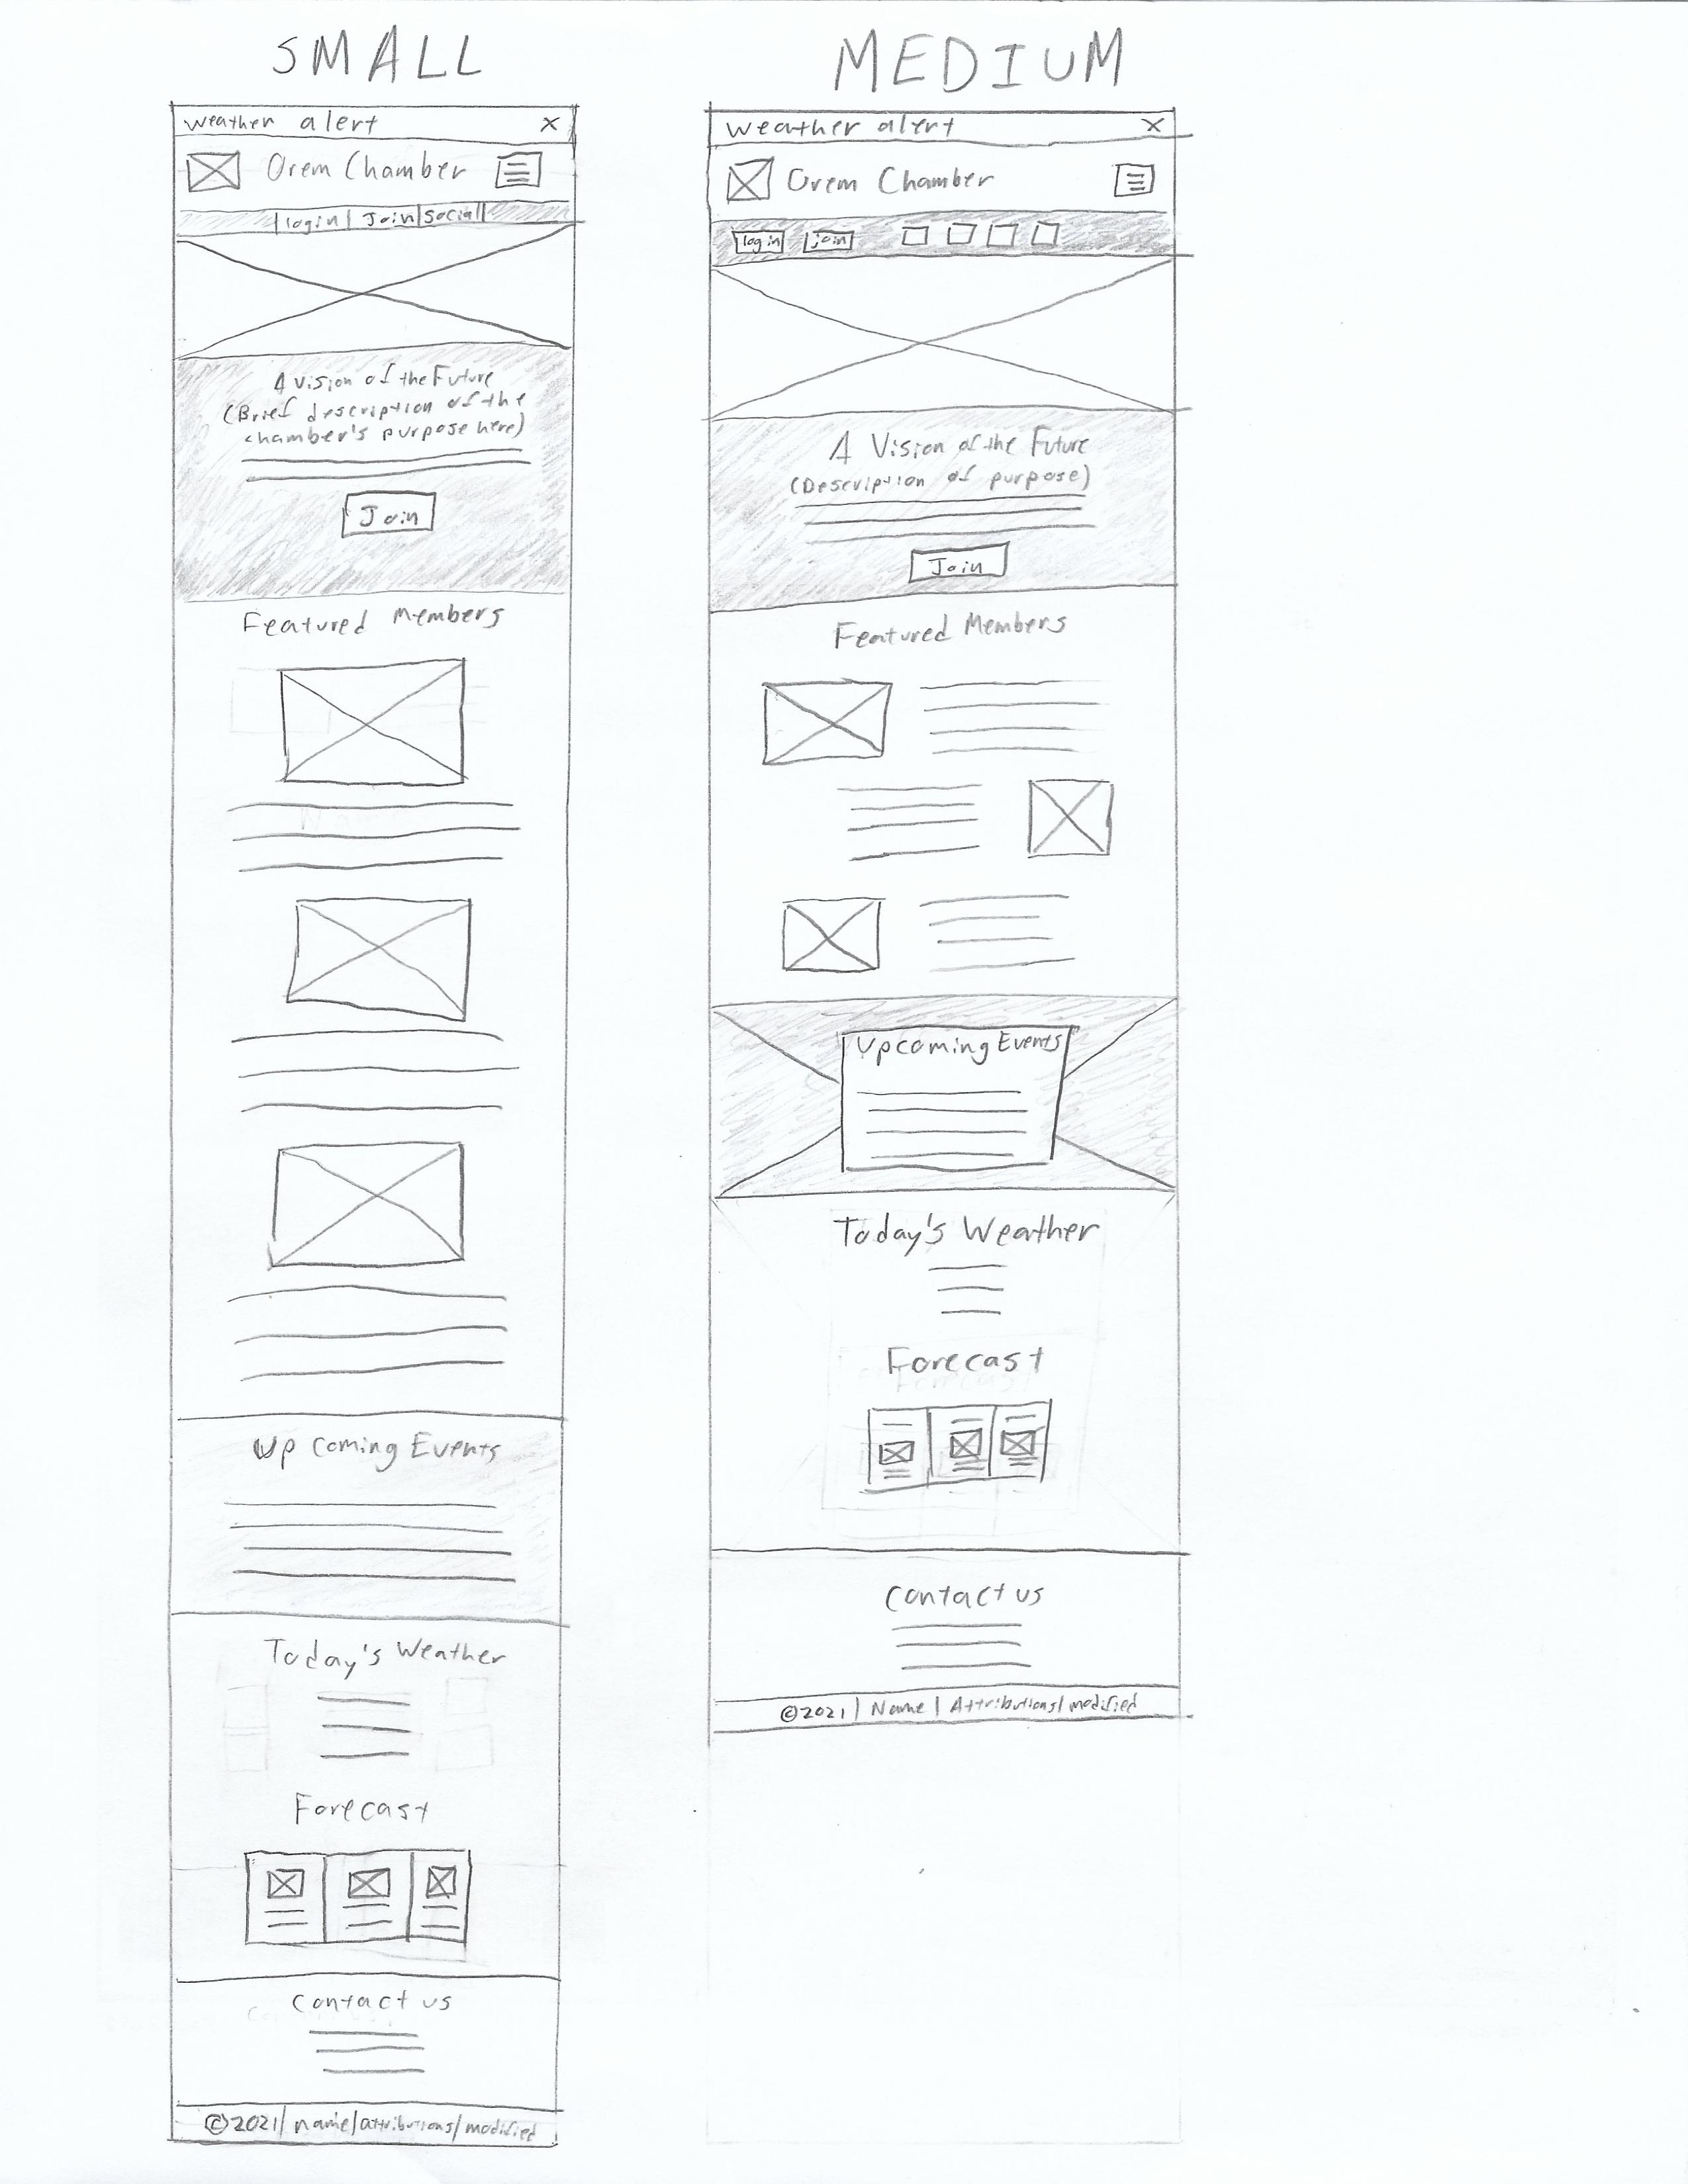 SMALL
weather alert X
Orem Chamber
|login| Join|social|
A vision of the Future
(Brief description of the
chamber's purpose here)
Join
Featured Members
Up coming Events
Today's Weather
Forecast
Contact us
©2021| name|attributions/modified
MEDIUM
weather alert X
Orem Chamber
login join
A Vision of the Future
(Description of purpose)
Join
Featured Members
Upcoming Events
Today's Weather
Forecast
Contact us
©2021| Name| Attributions/modified